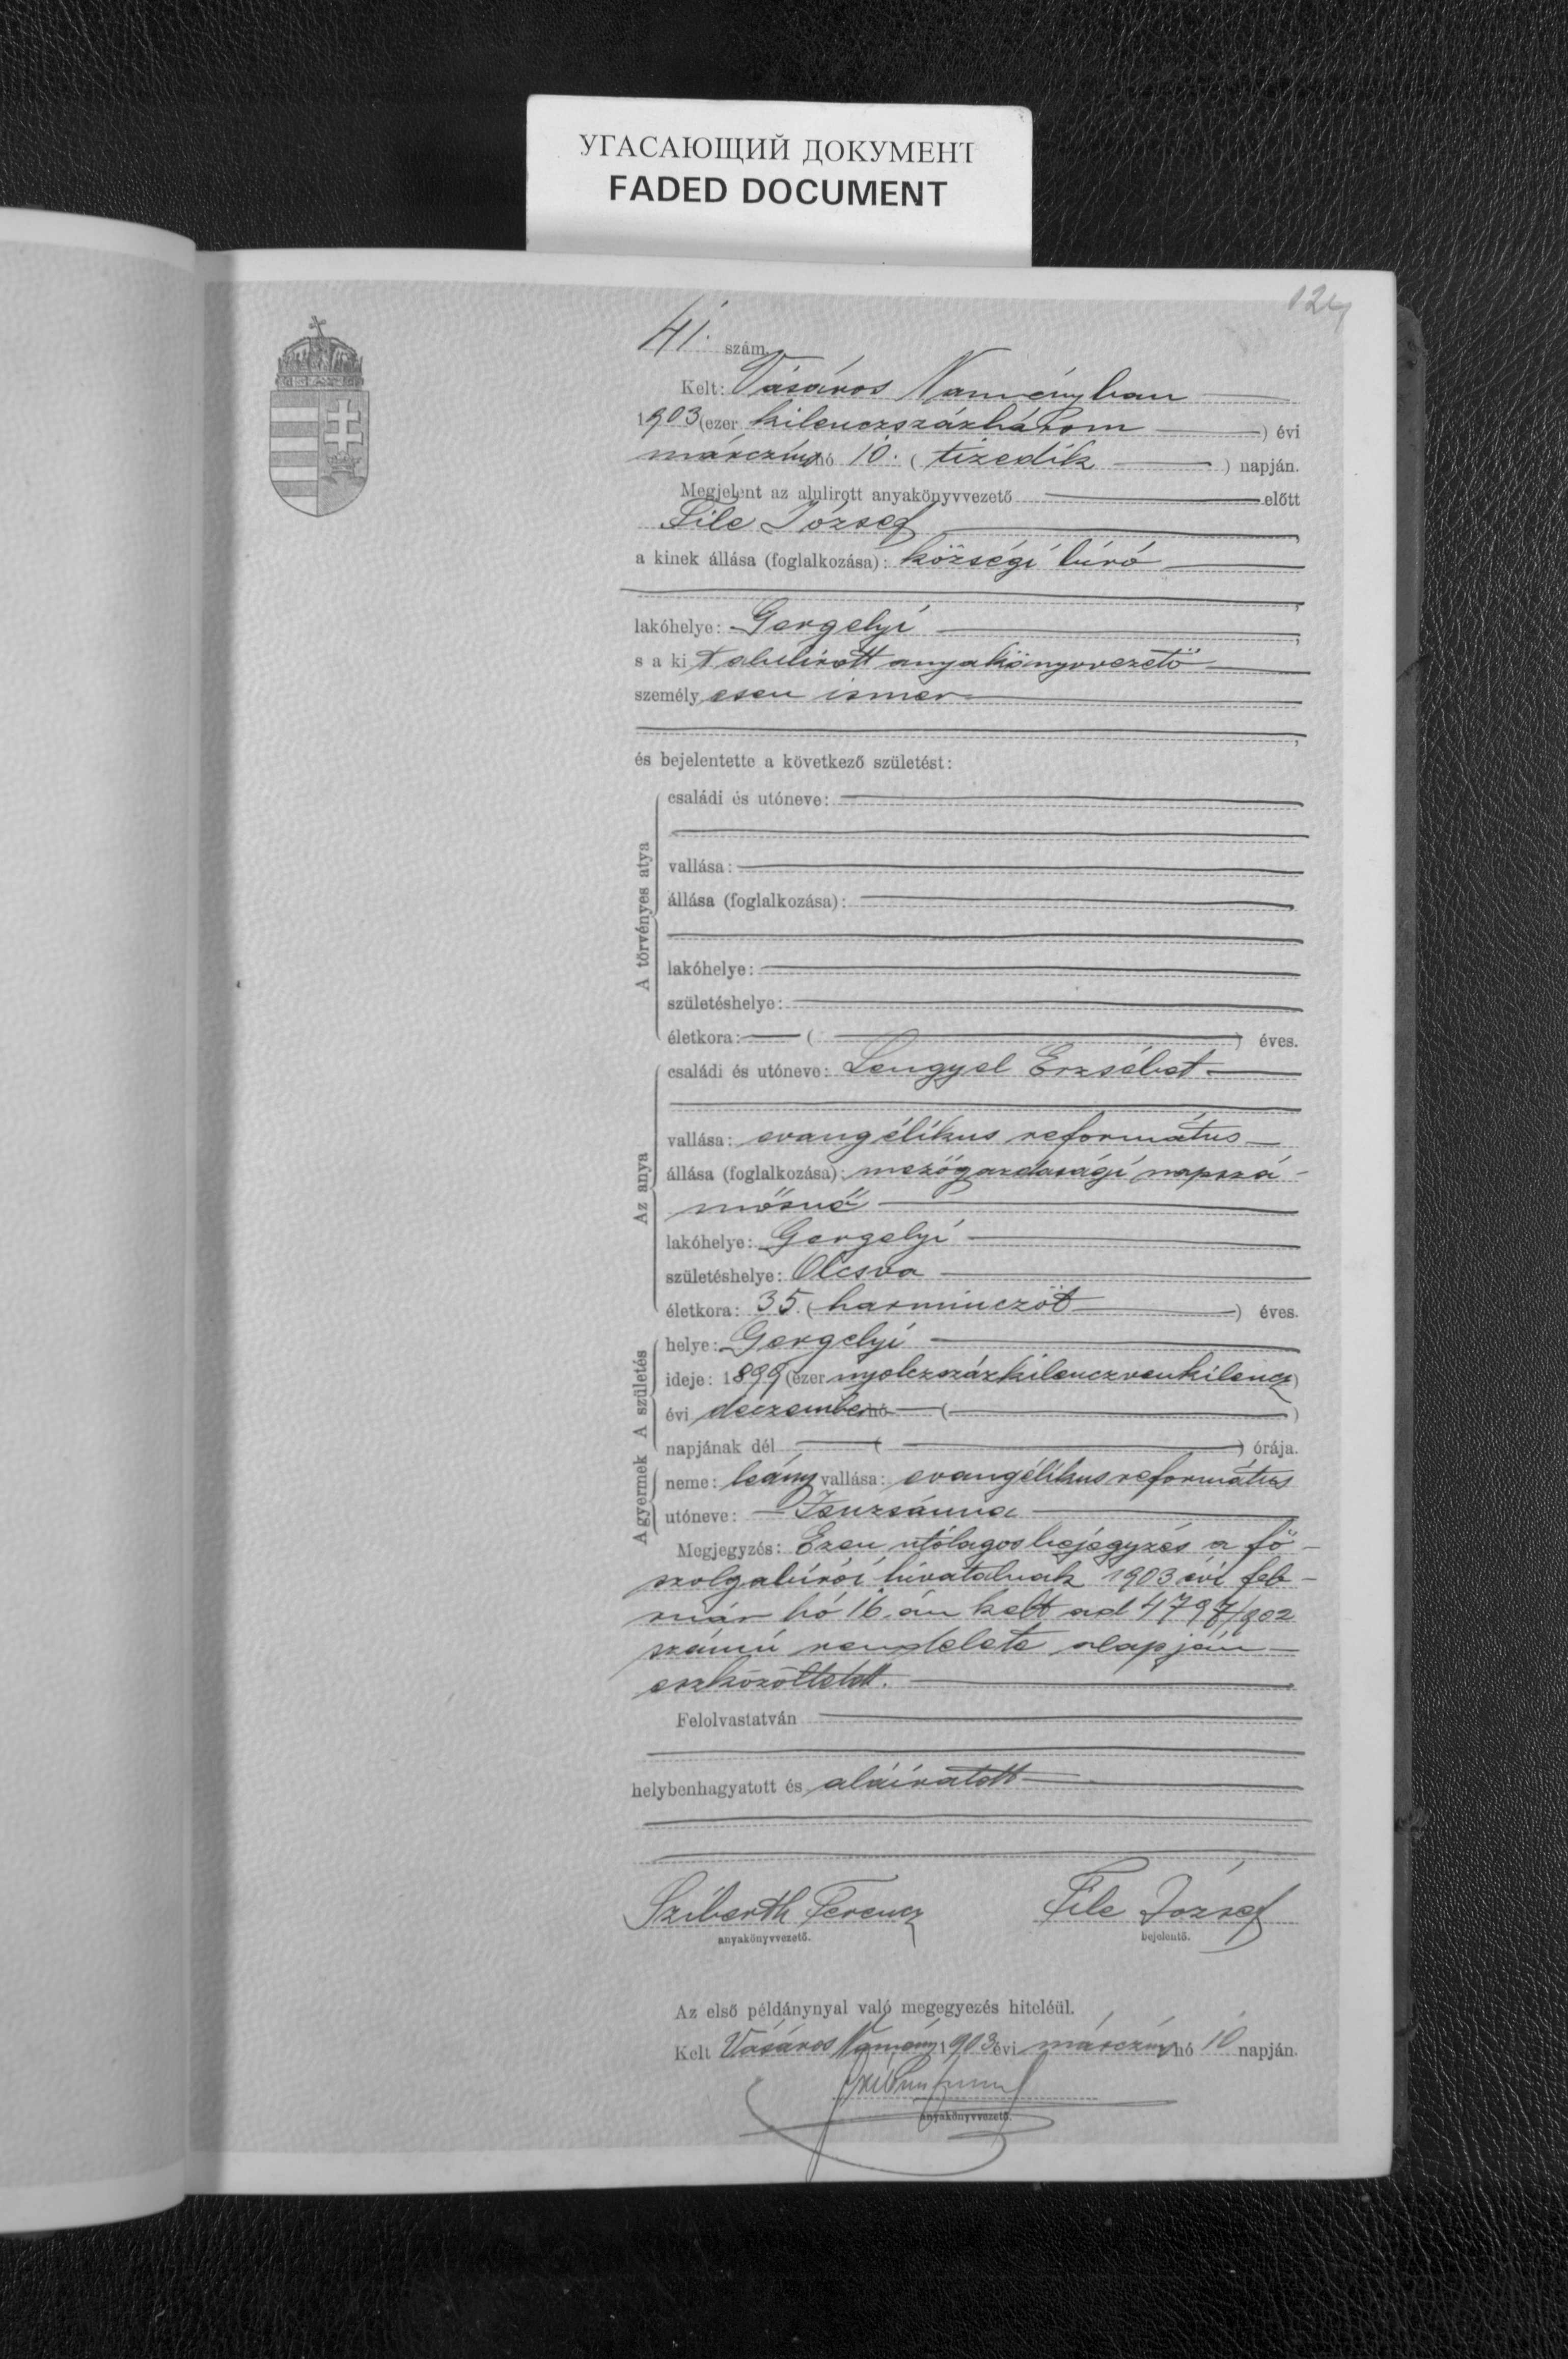 УГАСАЮЩИЙ ДОКУМЕНТ
FADED DOCUMENT
124
41. szám.
Kelt: Vásáros Naményban
1903 (ezer kilenczszázhárom ) évi
márczius hó 10. ( tizedik ) napján.
Megjelent az alulirott anyakönyvvezető előtt
File József
a kinek állása (foglalkozása): községi biró
lakóhelye: Gergelyi
s a kit alulirott anyakönyvvezető
személyesen ismer
és bejelentette a következő születést:
A törvényes atya
családi és utóneve:
vallása:
állása (foglalkozása):
lakóhelye:
születéshelye:
életkora: ( ) éves.
Az anya
családi és utóneve: Lengyel Erzsébet
vallása: evangélikus református
állása (foglalkozása): mezőgazdasági napszá-
mősnő
lakóhelye: Gergelyi
születéshelye: Olcsva
életkora: 35. ( harminczöt ) éves.
A születés
helye: Gergelyi
ideje: 1899 (ezer nyolczszázkilenczvenkilencz)
évi deczember hó ( )
napjának dél ( ) órája.
A gyermek
neme: leány vallása: evangélikus református
utóneve: Zsuzsánna
Megjegyzés: Ezen utólagos bejegyzés a fő-
szolgabírói hivatalnak 1903 évi feb-
ruár hó 16.án kelt ad 4797/902
számú rendelete alapján
eszközöltetett.
Felolvastatván
helybenhagyatott és aláíratott
Sziberth Ferencz File József
anyakönyvvezető. bejelentő.
Az első példánynyal való megegyezés hiteléül.
Kelt Vásáros Namény 1903 évi márczius hó 10 napján.
anyakönyvvezető.